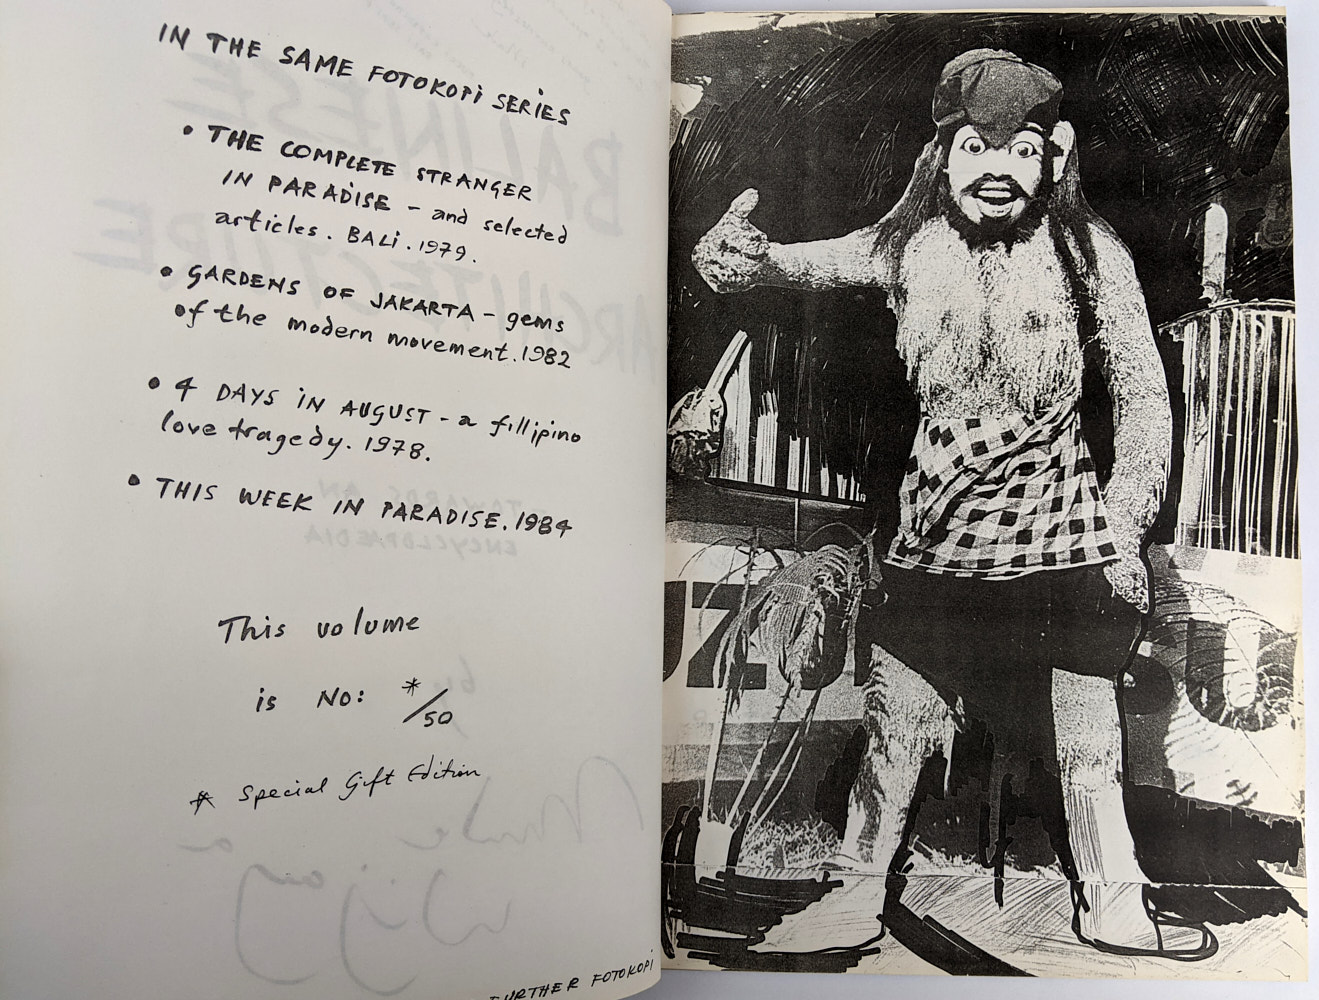 IN THE SAME FOTOKOPI SERIES
• THE COMPLETE STRANGER
IN PARADISE - and selected
articles. BALI. 1979.
• GARDENS OF JAKARTA - gems
of the modern movement. 1982
• 4 DAYS IN AUGUST - a fillipino
love tragedy. 1978.
• THIS WEEK IN PARADISE. 1984
This volume
is NO: */50
* Special Gift Edition
FURTHER FOTOKOPI
BALINESE
ARCHITECTURE
TOWARDS AN
ENCYCLOPAEDIA
by
Made
Wijaya
UZU